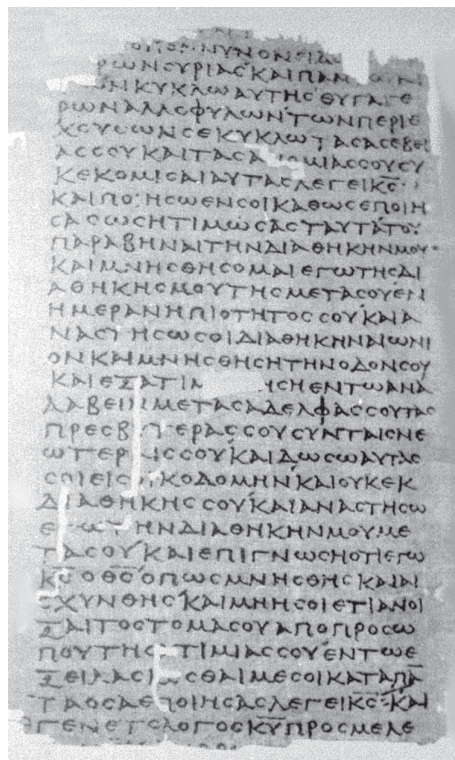 ΝΥΝΟΝΕΙΔ
ΡΩΝϹΥΡΙΑϹΚΑΙΠΑΝ
ΩΝΚΥΚΛΩΑΥΤΗϹΘΥΓΑΤΕ
ΡΩΝΑΛΛΟΦΥΛΩΝΤΩΝΠΕΡΙΕ
ΧΟΥϹΩΝϹΕΚΥΚΛΩΤΑϹΑϹΕΒΕΙ
ΑϹϹΟΥΚΑΙΤΑϹΑΝΟΜΙΑϹϹΟΥϹΥ
ΚΕΚΟΜΙϹΑΙΑΥΤΑϹΛΕΓΕΙΚ̅Ϲ̅·
ΚΑΙΠΟΙΗϹΩΕΝϹΟΙΚΑΘΩϹΕΠΟΙΗ
ϹΑϹΩϹΗΤΙΜΩϹΑϹΤΑΥΤΑΤΟΥ
ΠΑΡΑΒΗΝΑΙΤΗΝΔΙΑΘΗΚΗΝΜΟΥ·
ΚΑΙΜΝΗϹΘΗϹΟΜΑΙΕΓΩΤΗϹΔΙ
ΑΘΗΚΗϹΜΟΥΤΗϹΜΕΤΑϹΟΥΕΝ
ΗΜΕΡΑΝΗΠΙΟΤΗΤΟϹϹΟΥΚΑΙΑ
ΝΑϹΤΗϹΩϹΟΙΔΙΑΘΗΚΗΝΑΙΩΝΙ
ΟΝΚΑΙΜΝΗϹΘΗϹΗΤΗΝΟΔΟΝϹΟΥ
ΚΑΙΕΞΑΤΙΜ ΗϹΗΕΝΤΩΑΝΑ
ΛΑΒΕΙΝΜΕΤΑϹΑΔΕΛΦΑϹϹΟΥΤΑϹ
ΠΡΕϹΒΥΤΕΡΑϹϹΟΥϹΥΝΤΑΙϹΝΕ
ΩΤΕΡΑΙϹϹΟΥΚΑΙΔΩϹΩΑΥΤΑϹ
ϹΟΙΕΙϹΟΙΚΟΔΟΜΗΝΚΑΙΟΥΚΕΚ
ΔΙΑΘΗΚΗϹϹΟΥΚΑΙΑΝΑϹΤΗϹΩ
ΕΓΩΤΗΝΔΙΑΘΗΚΗΝΜΟΥΜΕ
ΤΑϹΟΥΚΑΙΕΠΙΓΝΩϹΗΟΤΙΕΓΩ
Κ̅Ϲ̅ΟΘ̅Ϲ̅ΟΠΩϹΜΝΗϹΘΗϹΚΑΙΑΙ
ϹΧΥΝΘΗϹΚΑΙΜΗΗϹΟΙΕΤΙΑΝΟΙ
ΞΑΙΤΟϹΤΟΜΑϹΟΥΑΠΟΠΡΟϹΩ
ΠΟΥΤΗϹΑΤΙΜΙΑϹϹΟΥΕΝΤΩΕ
ΞΕΙΛΑϹΑϹΘΑΙΜΕϹΟΙΚΑΤΑΠΑ
ΤΑΟϹΑΕΠΟΙΗϹΑϹΛΕΓΕΙΚ̅Ϲ̅·ΚΑΙ
ΕΓΕΝΕΤΟΛΟΓΟϹΚ̅Υ̅ΠΡΟϹΜΕΛΕ